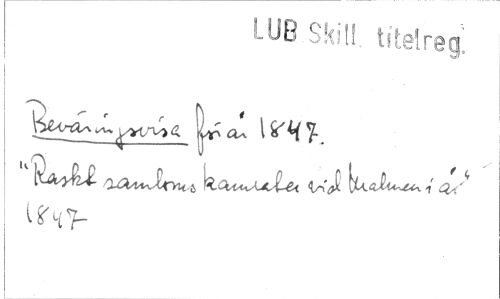 LUB Skill. titelreg.
Beväringsvisa för år 1847.
"Raskt samloms kamrater vid Malmen i år"
1847